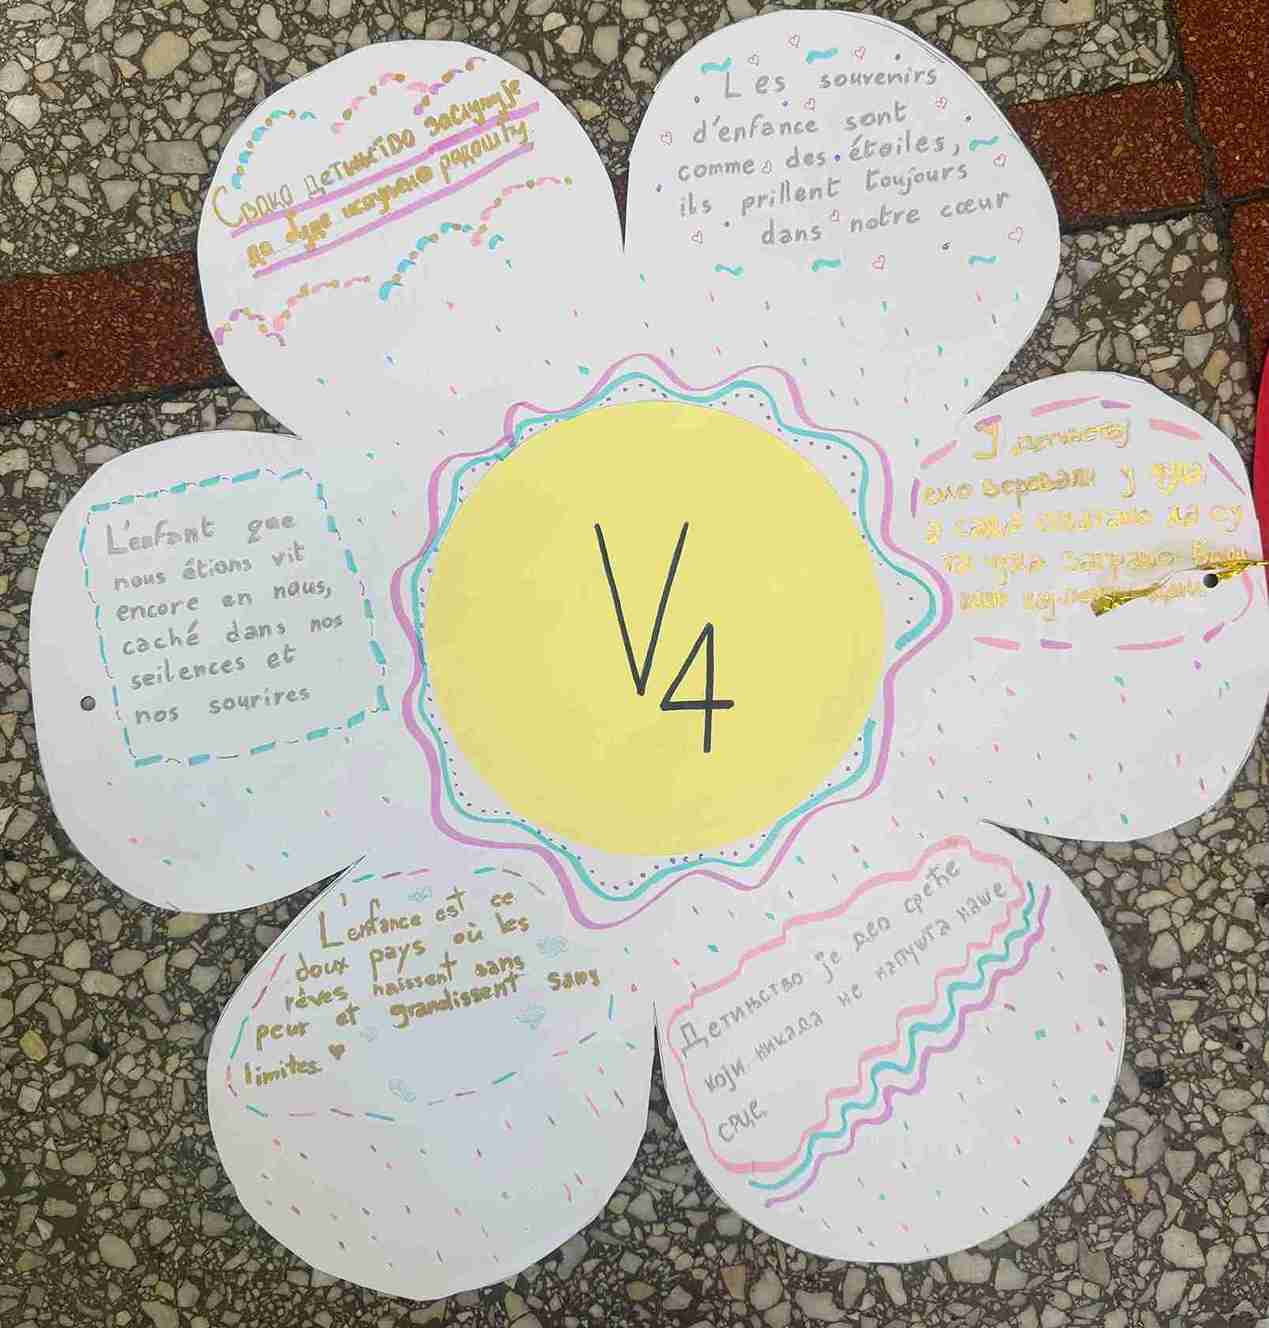 Свако детињство заслужује
да буде испуњено радошћу
Les souvenirs
d'enfance sont
comme des étoiles,
ils prillent toujours
dans notre cœur
У детињству
смо веровали у чуда
а сада схватамо да су
та чуда заправо били
L'enfant que
nous étions vit
encore en nous,
caché dans nos
seilences et
nos sourires
V4
L'enfance est ce
doux pays où les
rêves naissent sans
peur et grandissent sans
limites
Детињство је део среће
који никада не напушта наше
срце